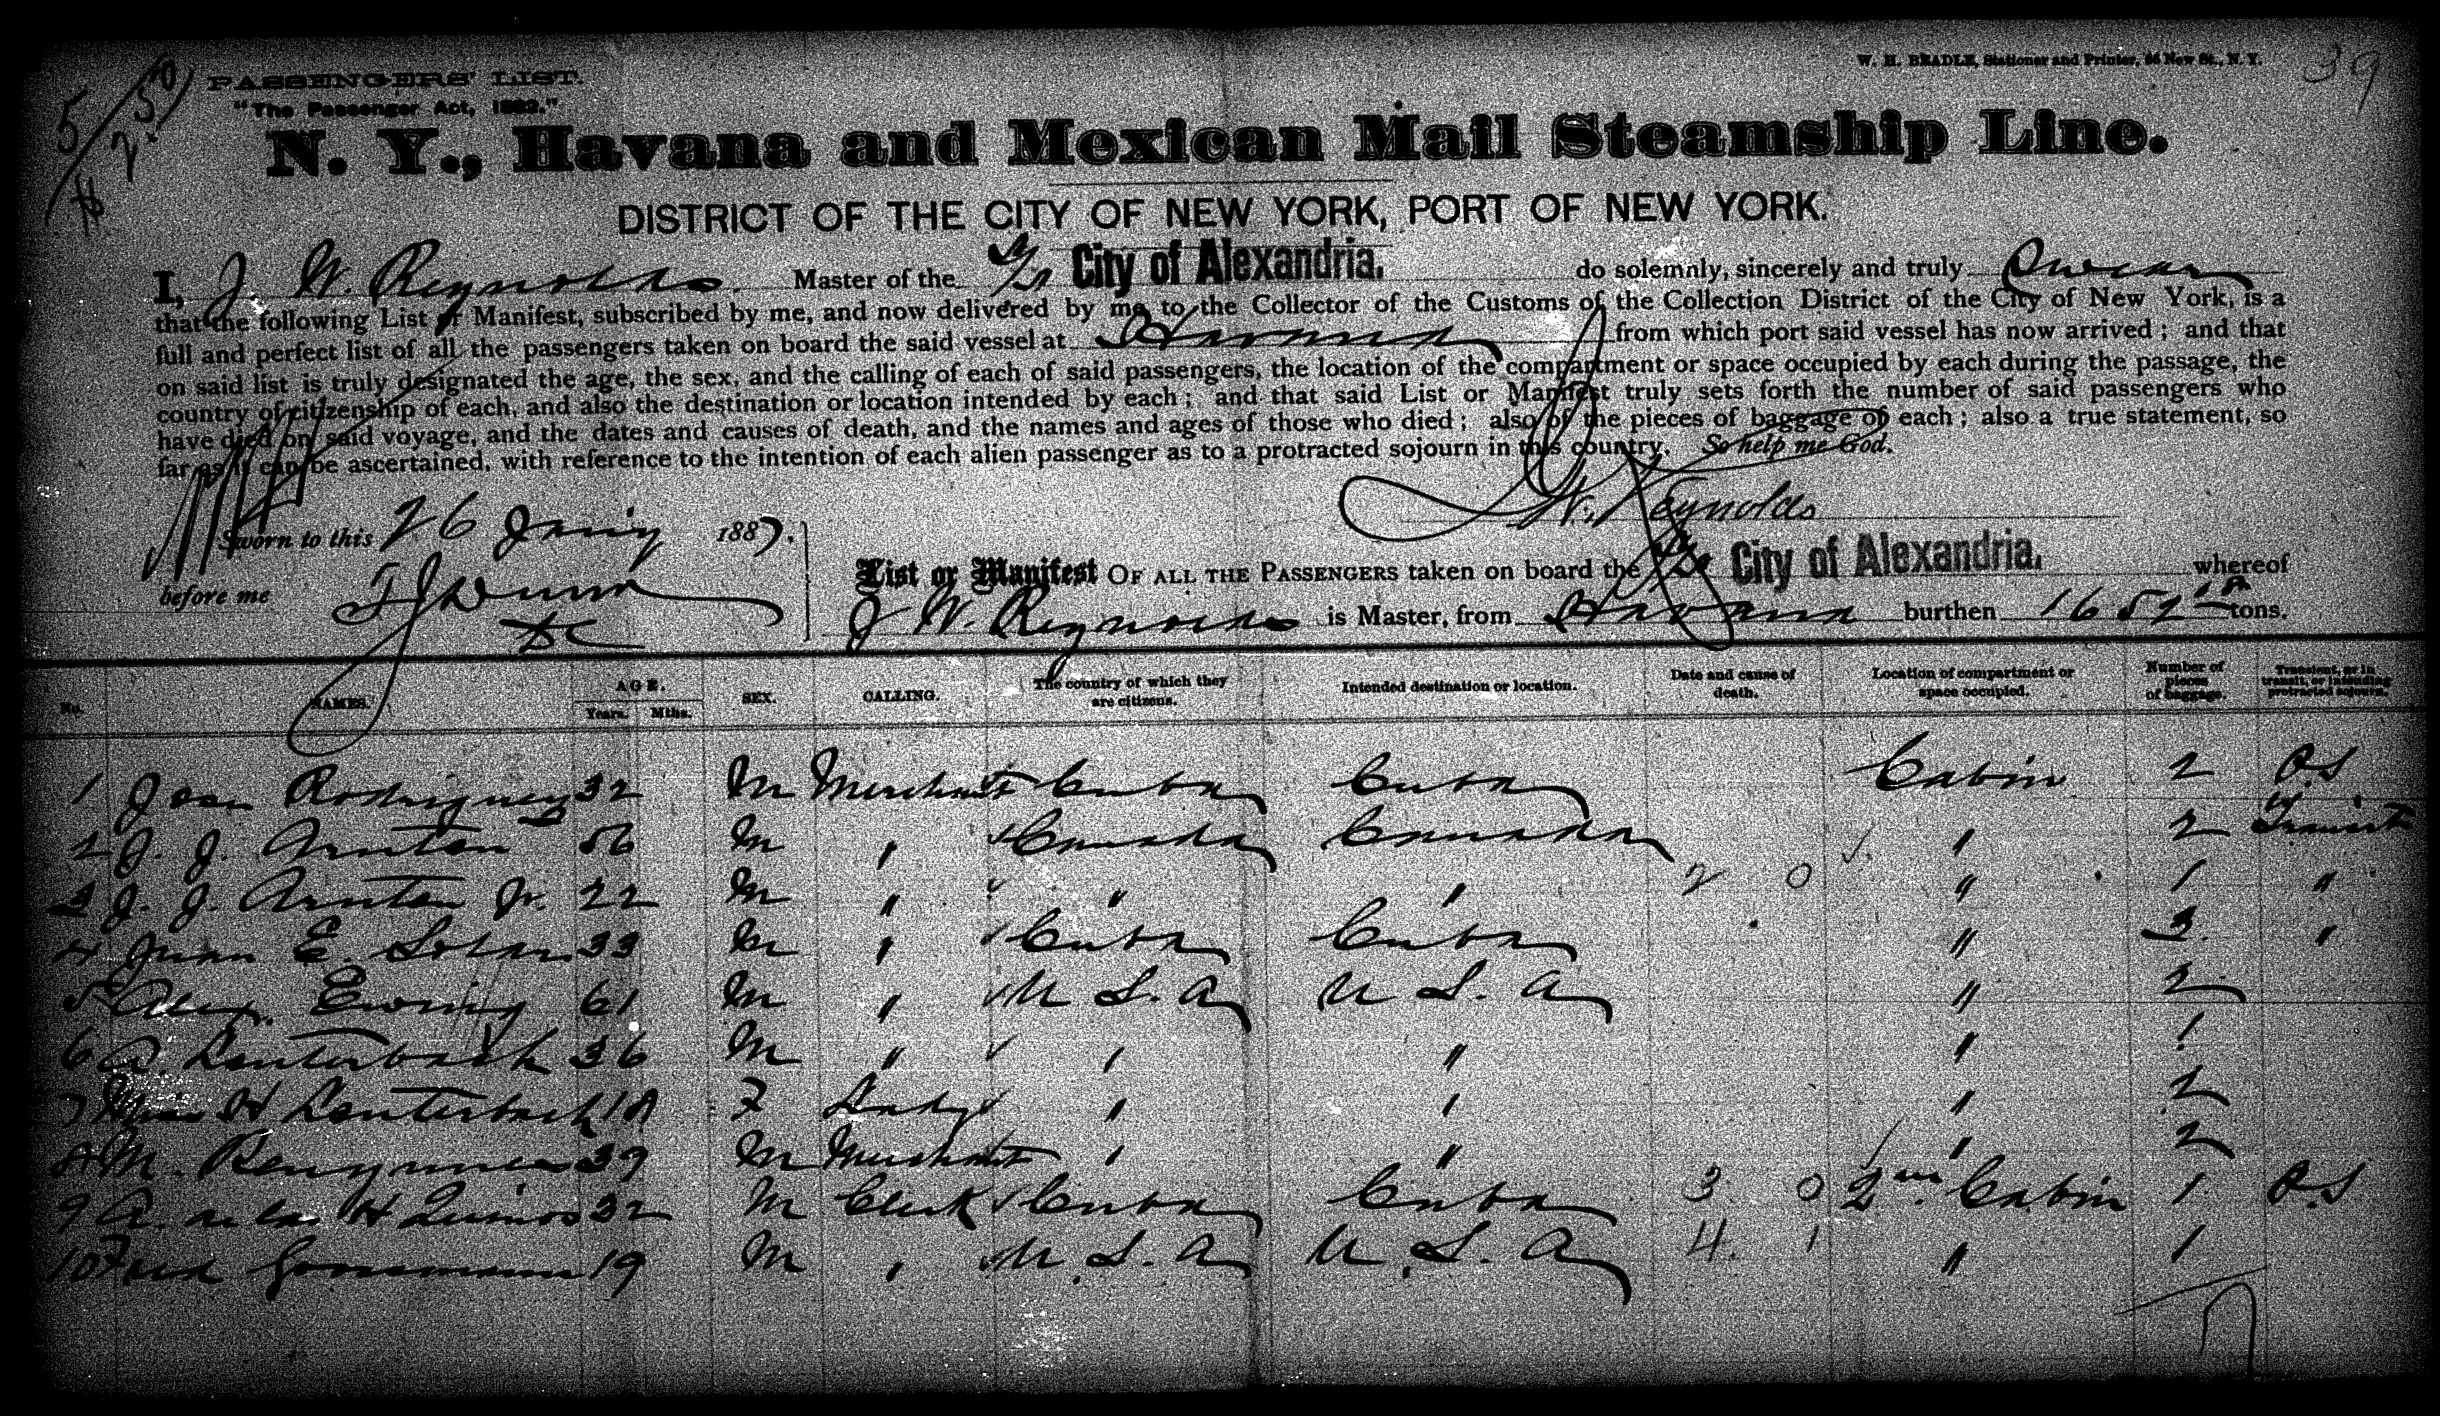 W. H. BEADLE, Stationer and Printer, 64 New St., N. Y.
39
PASSENGERS' LIST.
"The Passenger Act, 1882."
N. Y., Havana and Mexican Mail Steamship Line.
DISTRICT OF THE CITY OF NEW YORK, PORT OF NEW YORK.
I, J. W. Reynolds. Master of the S/S City of Alexandria. do solemnly, sincerely and truly Swear
that the following List or Manifest, subscribed by me, and now delivered by me to the Collector of the Customs of the Collection District of the City of New York, is a
full and perfect list of all the passengers taken on board the said vessel at Havana from which port said vessel has now arrived; and that
on said list is truly designated the age, the sex, and the calling of each of said passengers, the location of the compartment or space occupied by each during the passage, the
country of citizenship of each, and also the destination or location intended by each; and that said List or Manifest truly sets forth the number of said passengers who
have died on said voyage, and the dates and causes of death, and the names and ages of those who died; also of the pieces of baggage of each; also a true statement, so
far as it can be ascertained, with reference to the intention of each alien passenger as to a protracted sojourn in this country. So help me God.
J W. Reynolds
Sworn to this 26 1887.
before me
List or Manifest OF ALL THE PASSENGERS taken on board the S/S City of Alexandria. whereof
J W. Reynolds is Master, from Havana burthen 1652 tons.
No. NAMES. AGE. Years. Mths. SEX. CALLING. The country of which they are citizens. Intended destination or location. Date and cause of death. Location of compartment or space occupied. Number of pieces of baggage. Transient, or in transit, or intending protracted sojourn.
1 Rodriguez 32 M Merchant Cuba Cuba Cabin 2 P.S
2 J. J. Arnton 56 M " Canada Canada " 2 Transit
3 J. J. Arnton Jr. 22 M " " " 2 0 " 1 "
4 Juan E. 33 M " Cuba Cuba " 3 "
5 Alex. Ewing 61 M " U. S. A U. S. A " 2
6 A Lauterbach 36 M " " " " 1
7 Miss H Lauterbach 18 F Lady " " " 2
8 M. 39 M Merchant " " " 2
9 A. 32 M Clerk Cuba Cuba 3. 0 2nd Cabin 1 P.S
10 Fred 19 M " U. S. A U. S. A 4. 1 " 1